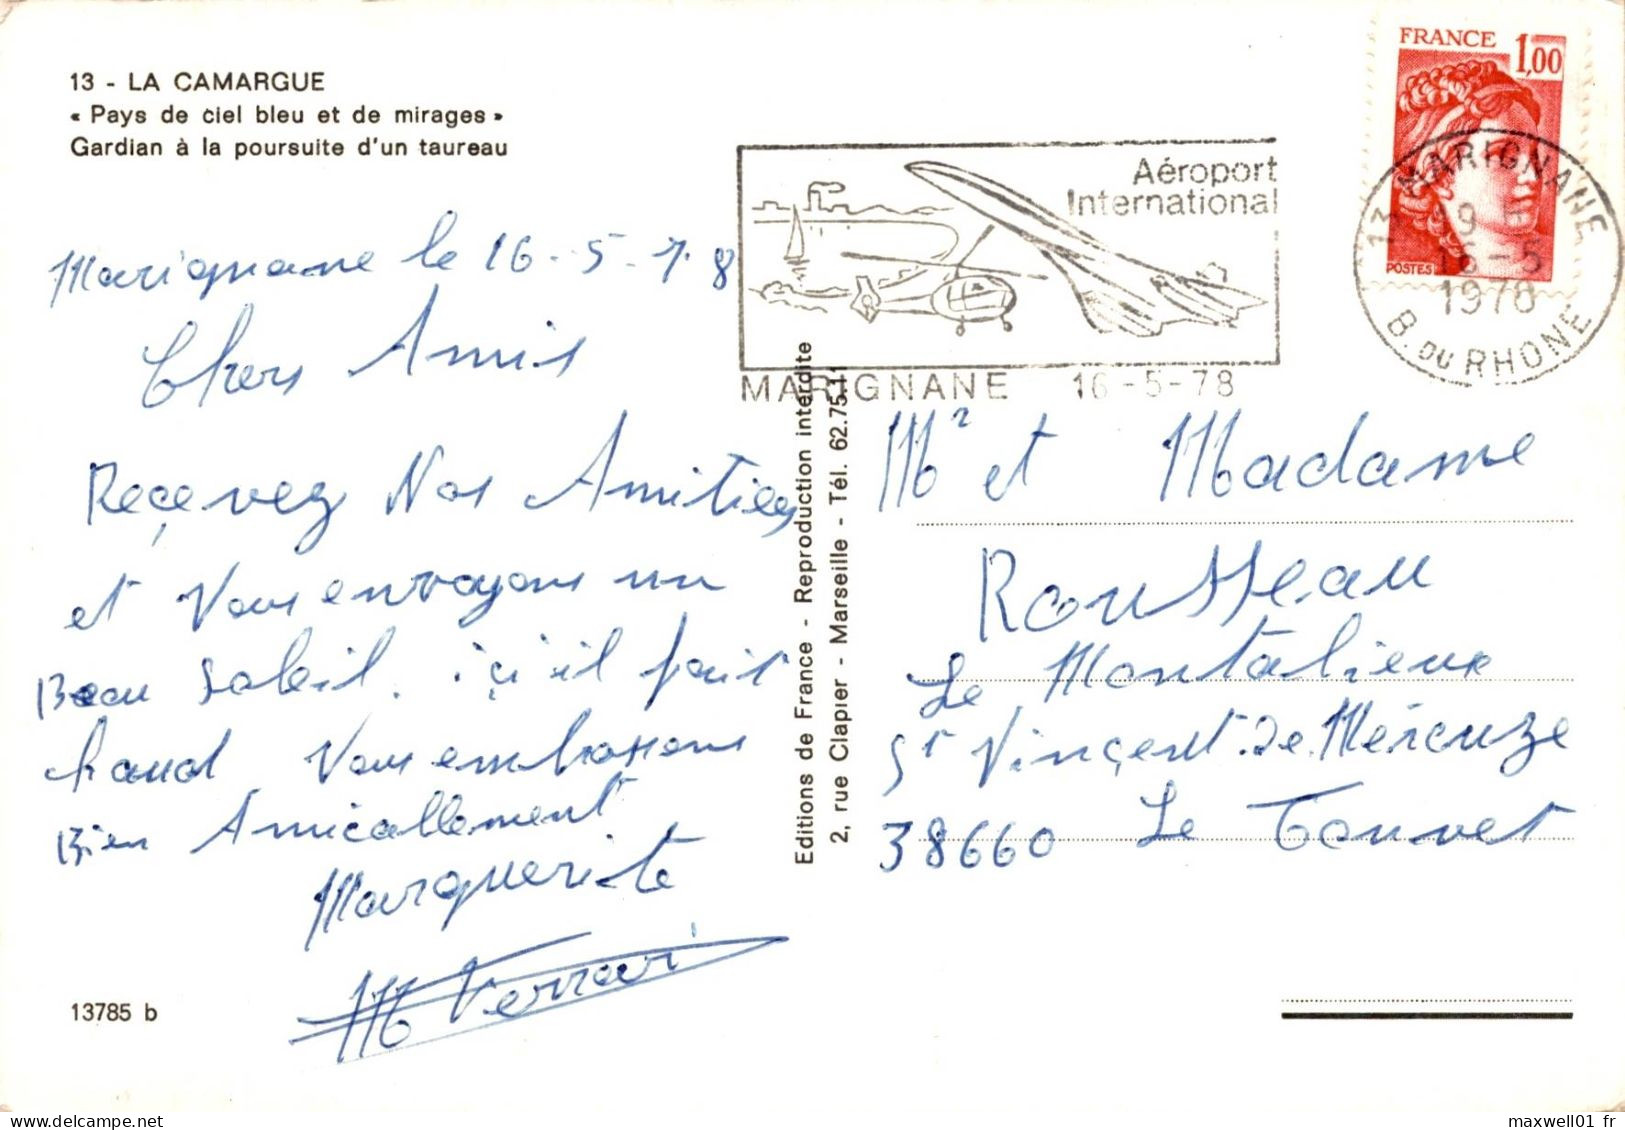 13 - LA CAMARGUE
« Pays de ciel bleu et de mirages »
Gardian à la poursuite d'un taureau
Marignane le 16-5-78
Chers Amis
Reçevez Nos Amitiées
et Vous envoyons un
Beau Soleil. içi il fait
haud Vous embrassons
Bien Amicallement
Marguerite
M Ferrari
13785 b
Editions de France - Reproduction interdite
2, rue Clapier - Marseille - Tél. 62.75.11
Aéroport
International
MARIGNANE 16-5-78
FRANCE 1,00
POSTES
13 MARIGNANE
16-5
1978
B. DU RHONE
Mr et Madame
Rousseau
Le Montalieux
St Vinçent.de.Mércuze
38660 Le Touvet
maxwell01 fr